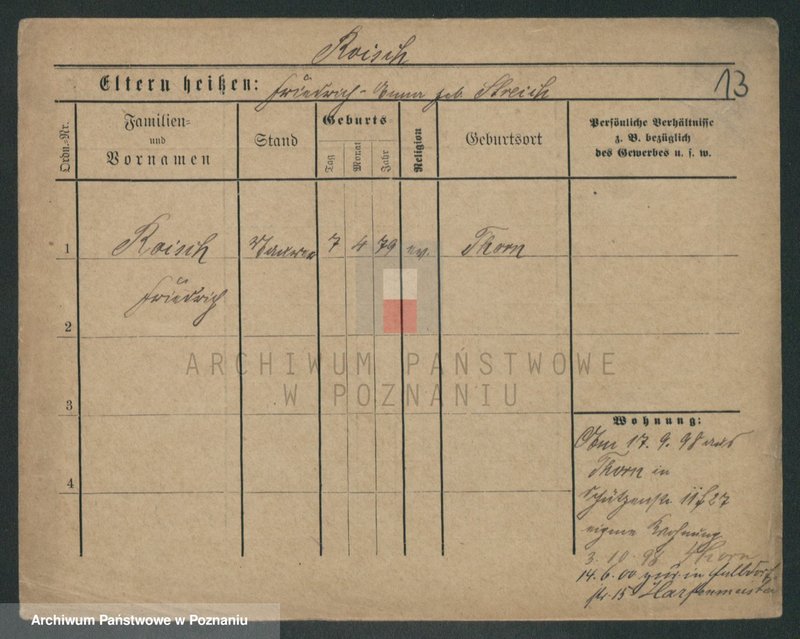 Roisch
Eltern heißen: Friedrich - Anna geb. Streich
13
Ordn.=Nr.
Familien=
und
Vornamen
Stand
Geburts
Tag
Monat
Jahr
Religion
Geburtsort
Persönliche Verhältnisse
z. B. bezüglich
des Gewerbes u. s. w.
1 Roisch 7 4 79 ev. Thorn
Friedrich
2
ARCHIWUM PAŃSTWOWE
W POZNANIU
3
4
Wohnung:
Am 17. 9. 98 aus
Thorn in
Schützenstr 27
eigene Wohnung
3. 10. 98 Thorn
14. 6. 00 in
str. 15
Archiwum Państwowe w Poznaniu